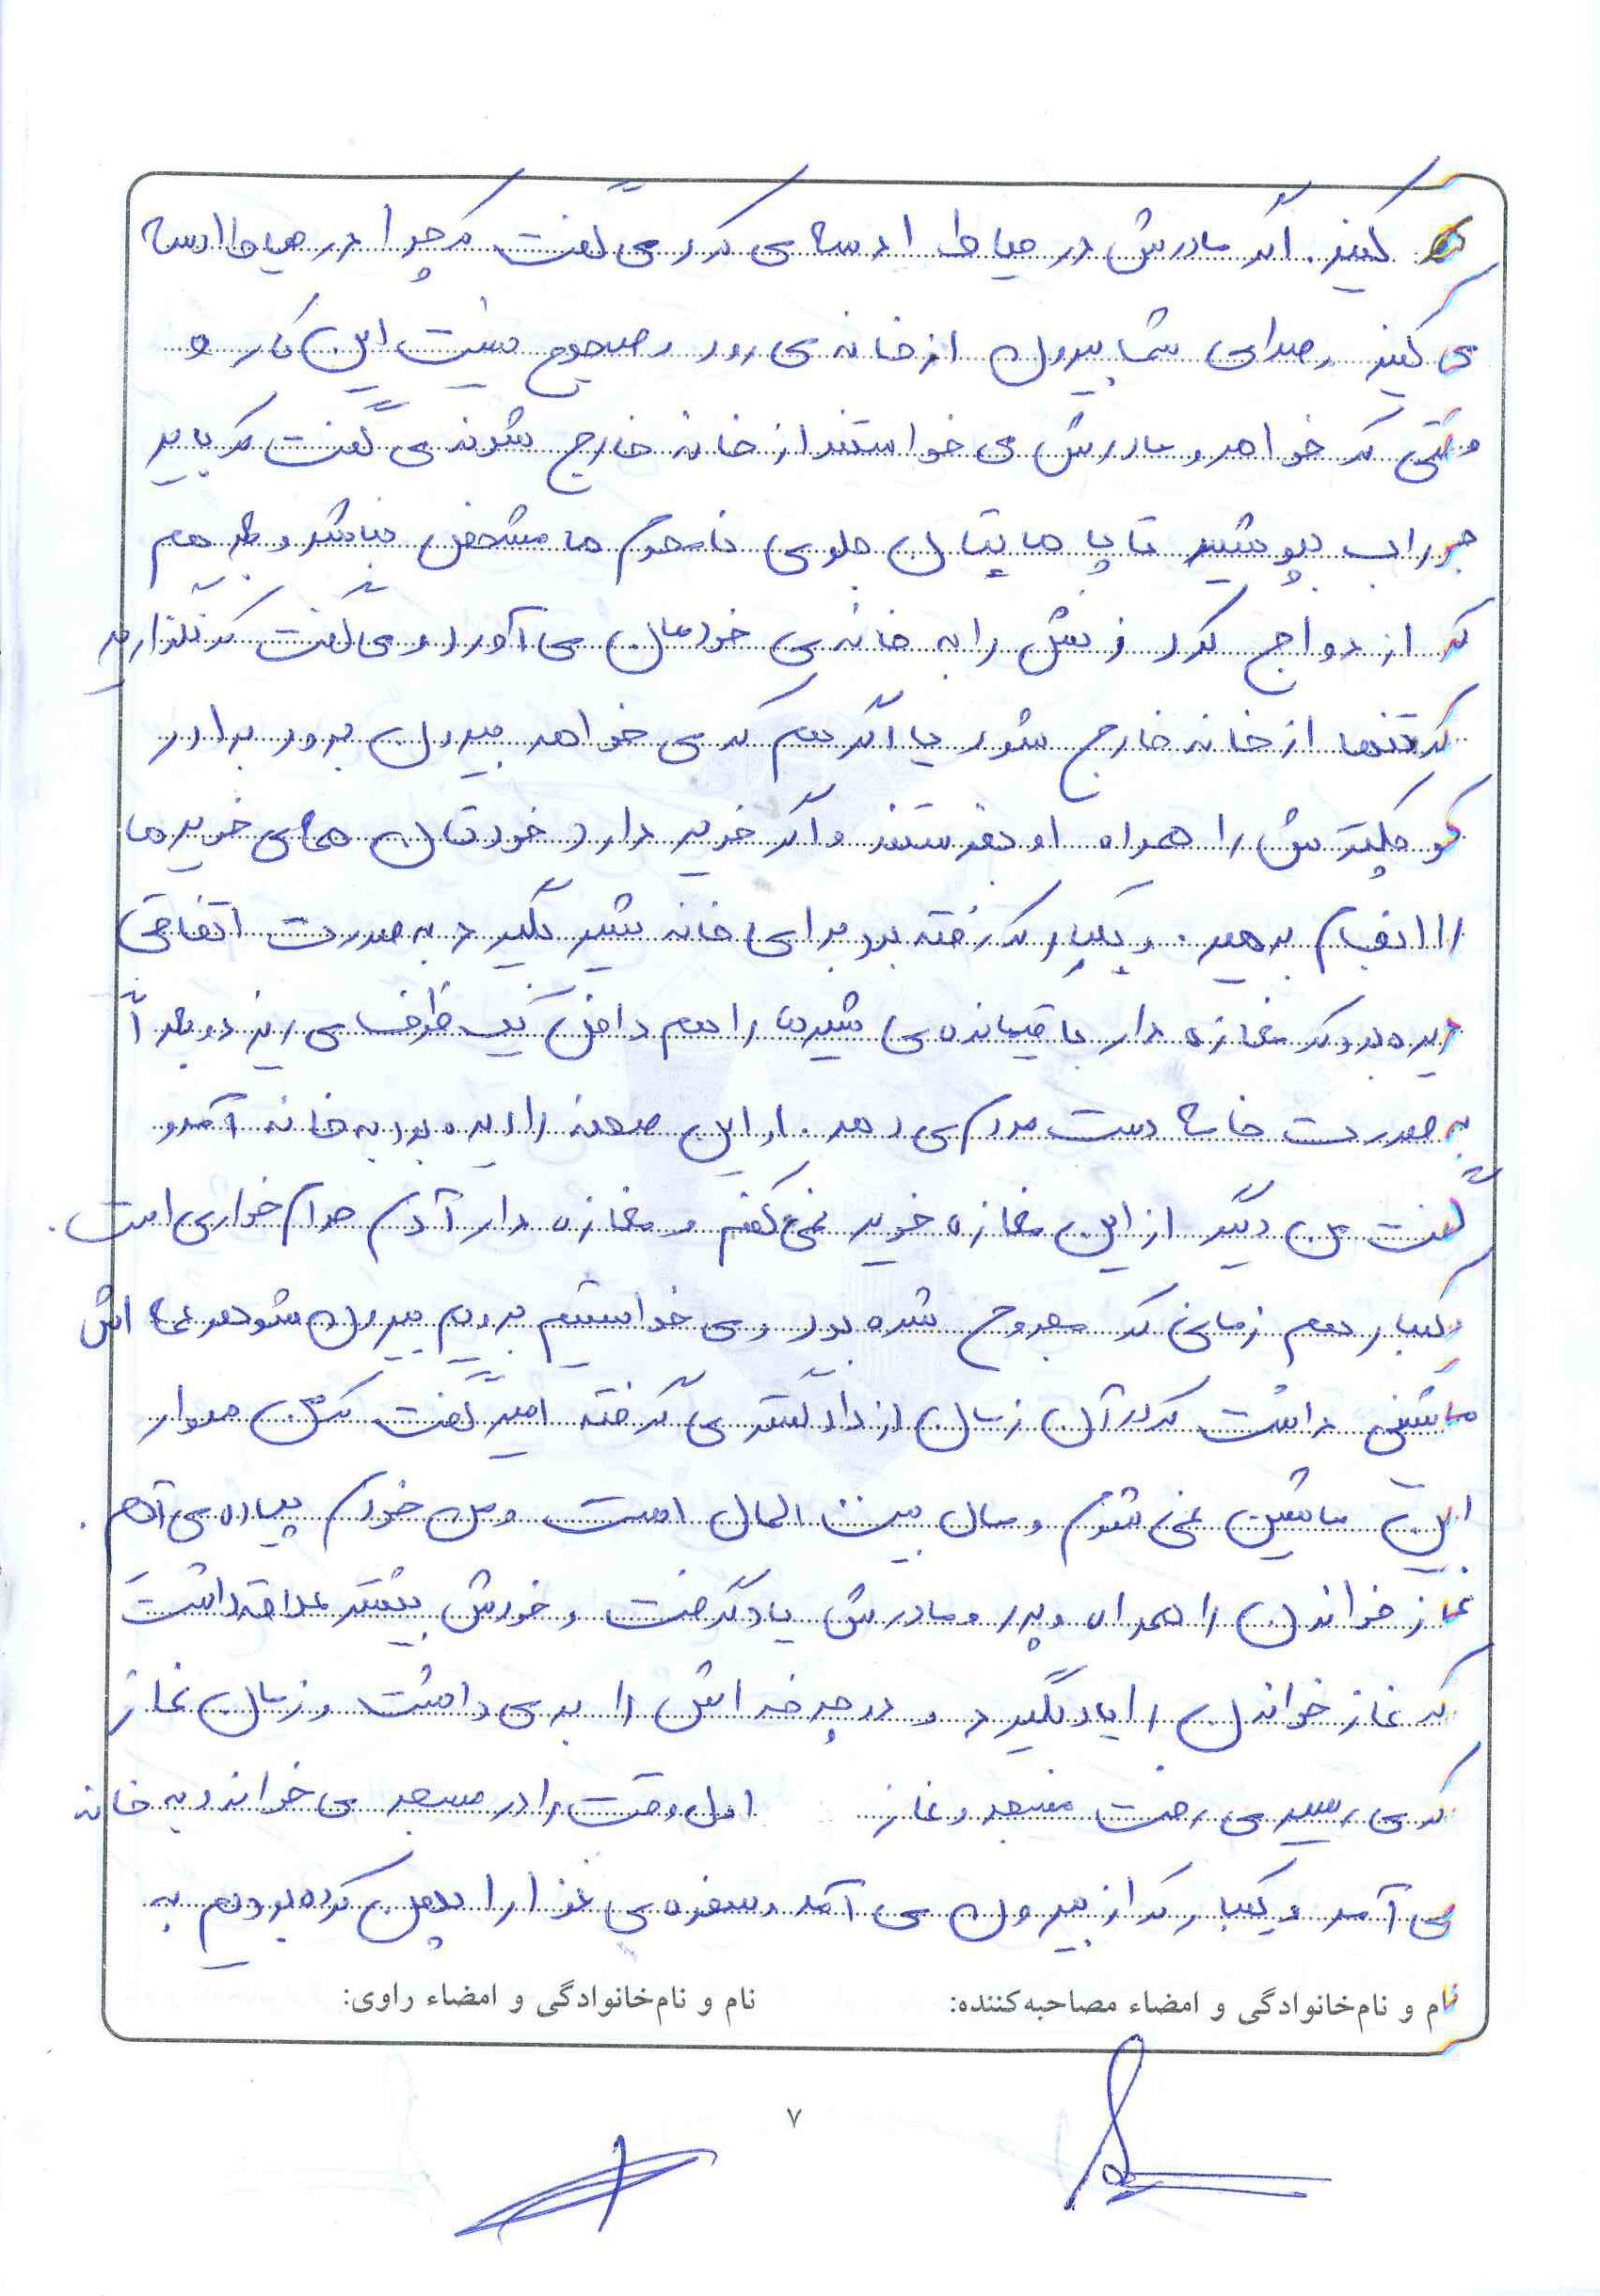 کنید. اگر مادرش در حیاط ادسه می کرد می گفت که چرا در حیاط ادسه
می کنید و صدای شما بیرون از خانه می رود و صحیح نیست این کار و
وقتی که خواهر و مادرش می خواستند از خانه خارج شوند می گفت که باید
جوراب بپوشید تا پاهایتان جلوی نامحرم ها مشخص نباشد و بعد هم
که ازدواج کرد زنش را به خانه ی خودمان می آورد و می گفت که نگذارید
که تنها از خانه خارج شود یا اگر هم که می خواهد بیرون برود برادر
کوچکترش را همراه او بفرستند و اگر خرید دارد خودتان های خرید ها
را انجام بدهید. و یکبار که رفته بود برای خانه شیر بگیرد به صورت اتفاقی
دیده بود که مغازه دار باقیمانده ی شیرها را هم داخل یک ظرف می ریزد و بعد آ
به صورت ماست دست مردم می دهد. او این صحنه را دیده بود به خانه آمد و
گفت من دیگر از این مغازه خرید نمی کنم و مغازه دار آدم حرام خواری است.
و یکبار هم زمانی که مجروح شده بود و می خواستیم برویم بیرون شوهر عمه اش
ماشینی داشت که در آن زمان از دادگستری گرفته امیر گفت که من سوار
این ماشین نمی شوم و مال بیت المال است و من خودم پیاده می آیم.
نماز خواندن را همراه و پدر و مادرش یاد گرفت و خودش بیشتر علاقه داشت
که نماز خواندن را یاد بگیرد و در چرخه اش را بر می داشت و زمان نماز
که می رسید می رفت مسجد و نماز اول وقت را در مسجد می خواند و به خانه
می آمد و یکبار که از بیرون می آمد و سفره ی غذا را پهن کرده بودیم به
نام و نام‌خانوادگی و امضاء مصاحبه‌کننده: نام و نام‌خانوادگی و امضاء راوی:
۷